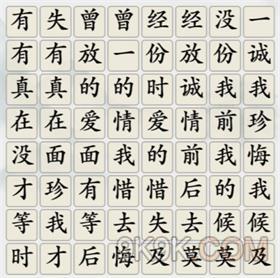 有失曾曾经经没一
有有放一份放份诚
真真的的时诚我我
在在爱情爱情前珍
没面面我的前我悔
才珍有惜惜后的我
等我等去失去候候
时才后悔及莫莫及